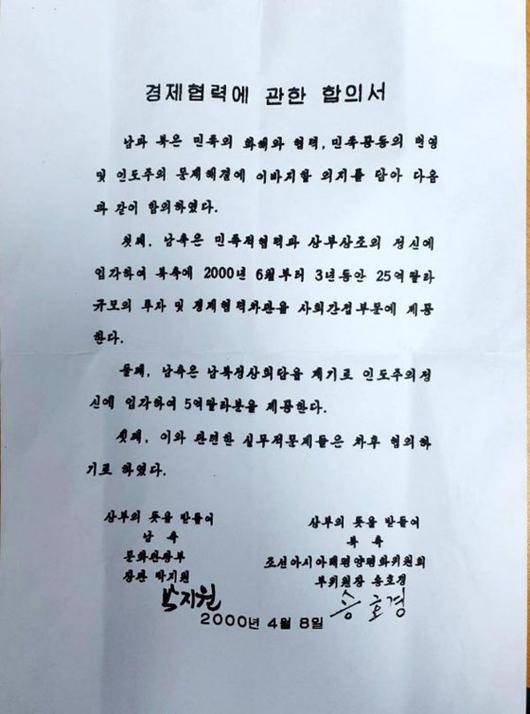 경제협력에 관한 합의서
남과 북은 민족의 화해와 협력, 민족공동의 번영
및 인도주의 문제해결에 이바지할 의지를 담아 다음
과 같이 합의하였다.
첫째, 남측은 민족적협력과 상부상조의 정신에
입각하여 북측에 2000년 6월부터 3년동안 25억딸라
규모의 투자 및 경제협력차관을 사회간접부문에 제공
한다.
둘째, 남측은 남북정상회담을 계기로 인도주의정
신에 입각하여 5억딸라분을 제공한다.
셋째, 이와 관련한 실무적문제들은 차후 협의하
기로 하였다.
상부의 뜻을 받들어
남 측
문화관광부
장관 박지원
박지원
상부의 뜻을 받들어
북 측
조선아시아태평양평화위원회
부위원장 송호경
송호경
2000년 4월 8일